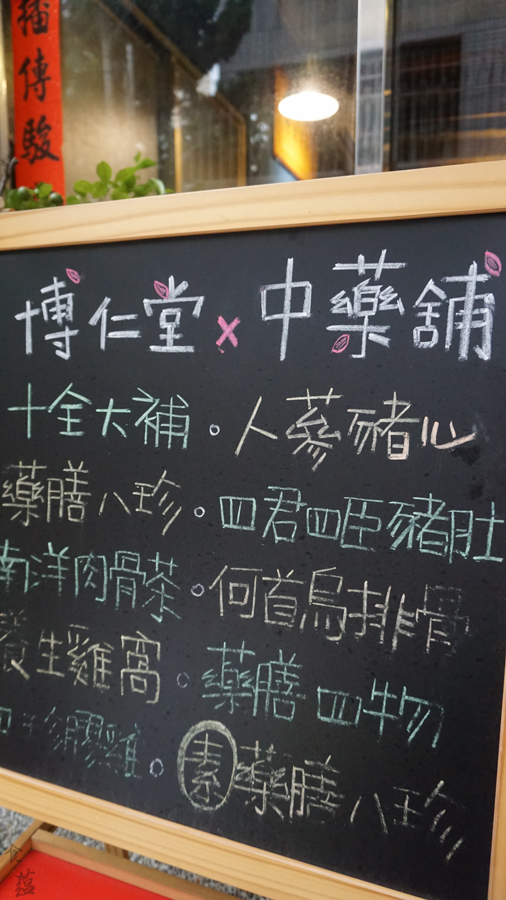 播傳駿
博仁堂x中藥舖
十全大補。人蔘豬心
藥膳八珍。四君四臣豬肚
南洋肉骨茶。何首烏排骨
養生雞窩。藥膳四物
膠雞。素藥膳八珍
食蘊